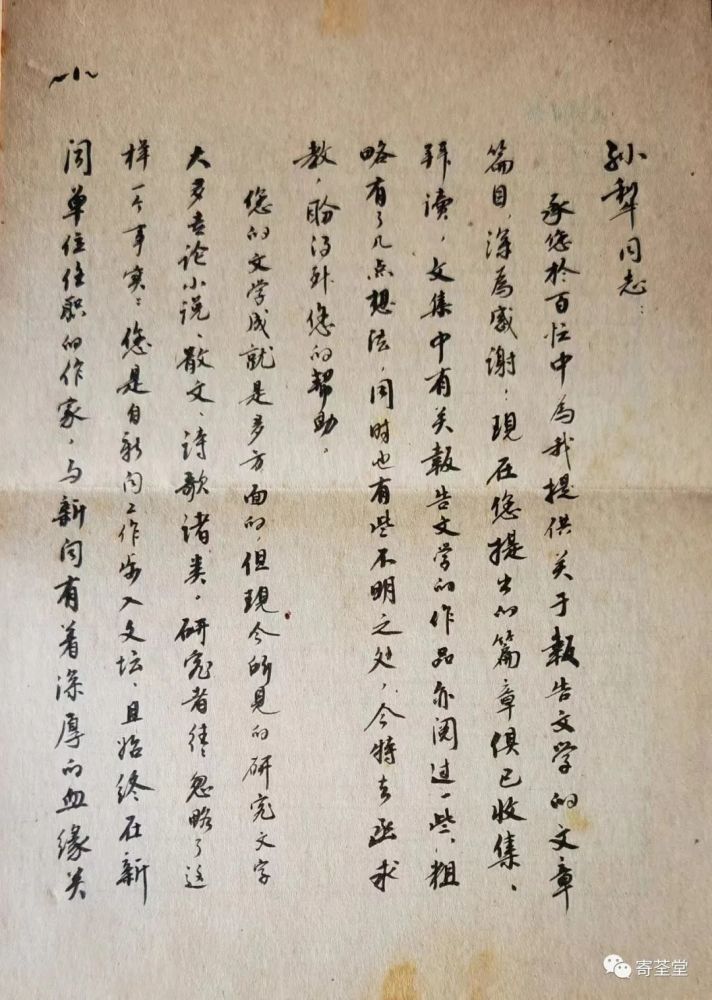 ~1~
孙犁同志：
承您於百忙中為我提供关于報告文学的文章
篇目，深為感谢！現在您提出的篇章俱已收集、
拜读，文集中有关報告文学的作品亦阅过一些，粗
略有了几点想法，同时也有些不明之处，今特去函求
教，盼得到您的帮助。
您的文学成就是多方面的，但現今所見的研究文字
大多专论小说、散文、诗歌诸类。研究者往往忽略了这
样一个事实：您是自新闻工作步入文坛，且始终在新
闻单位任职的作家，与新闻有着深厚的血缘关
寄荃堂